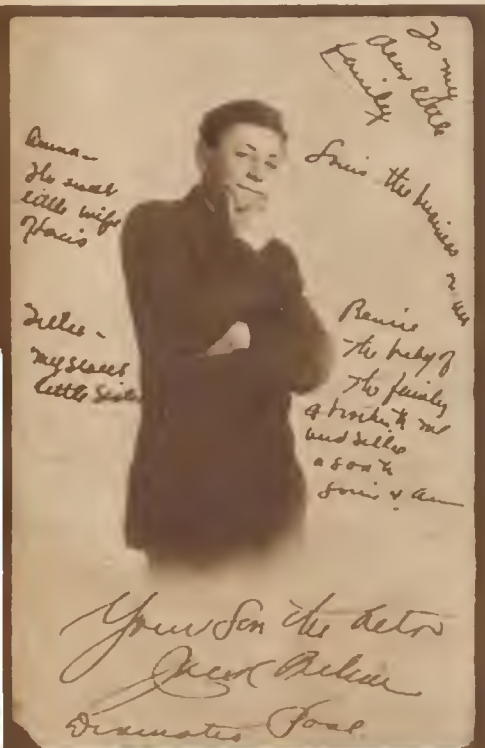 To my
dear little
family
Louis the business
Anna –
The sweet
little wife
of Louis
Tillie –
My sweet
little Sister
Bennie
the baby of
the family
a brother to me
and Tillie
a son to
Louis & Ann
Your Son the Actor
Jacob
Dramatic Pose